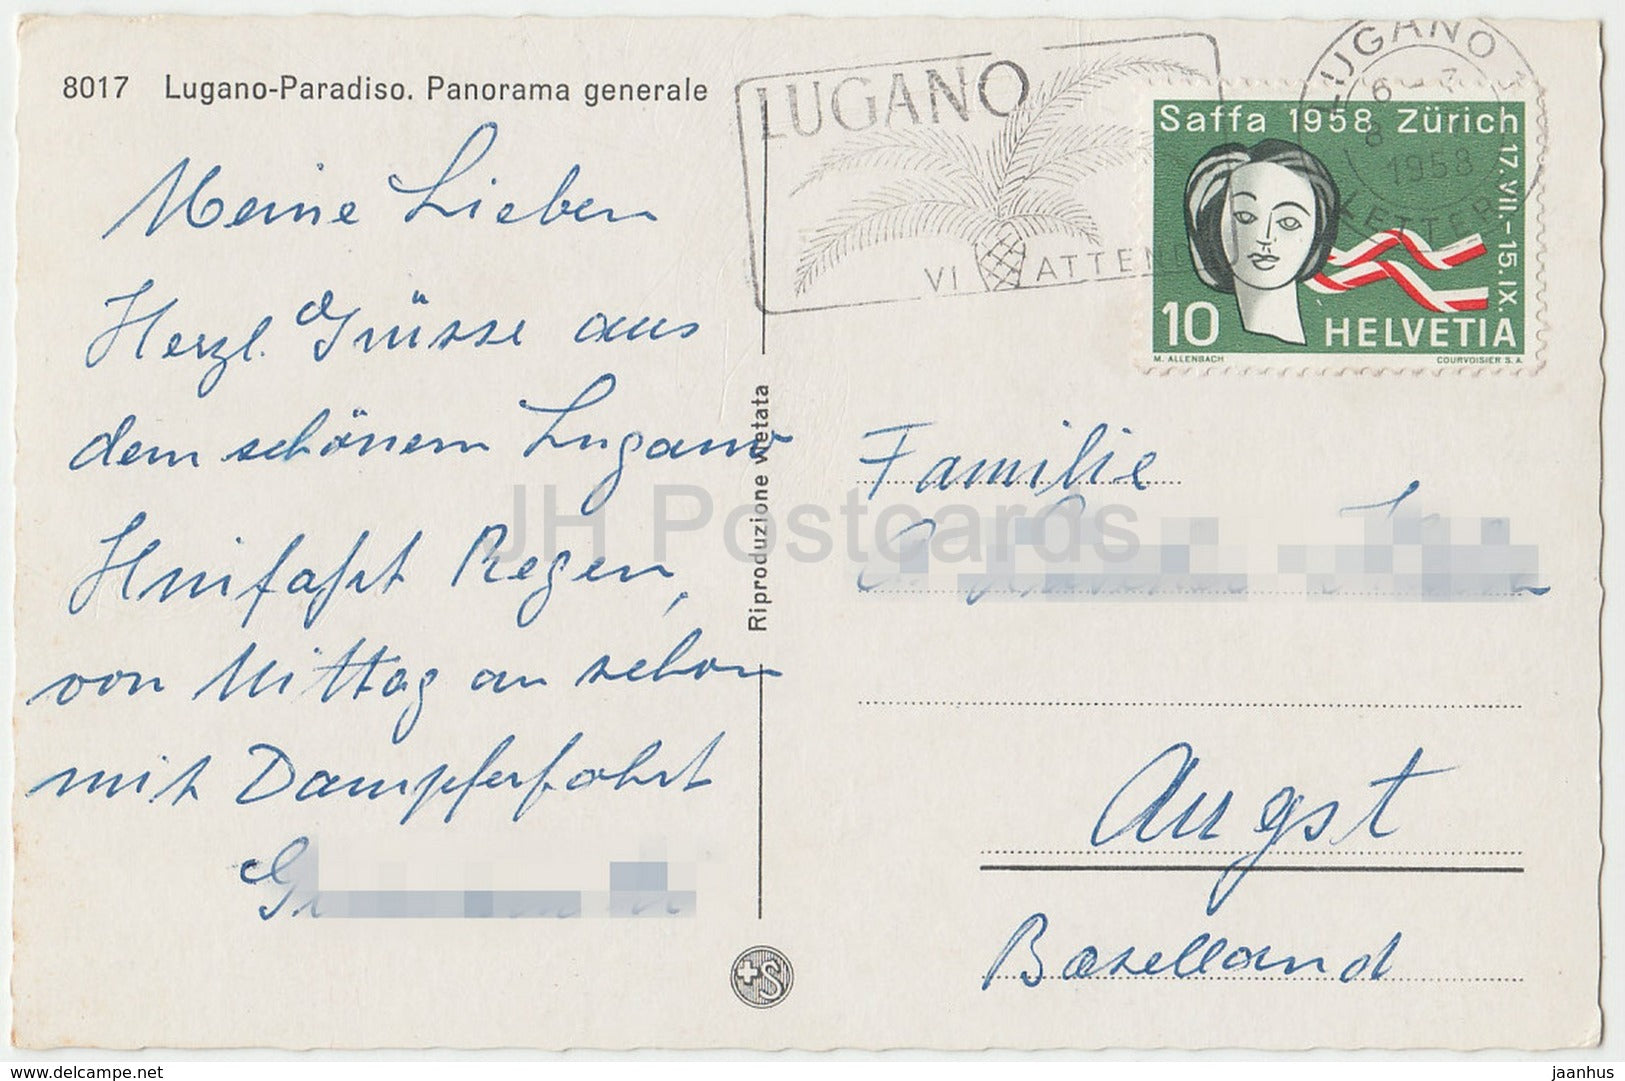 8017 Lugano-Paradiso. Panorama generale
Meine Lieben
Herzl. Grüsse aus
dem schönem Lugano
Hinfahrt Regen,
von Mittag an schon
mit Dampferfahrt
Riproduzione vietata
LUGANO
VI ATTEN
LUGANO
1958
LETTER
Saffa 1958 Zürich
17. VII.–15. IX.
10 HELVETIA
M. ALLENBACH COURVOISIER S. A.
Familie
Augst
Baselland
S
JH Postcards
www.delcampe.net
jaanhus